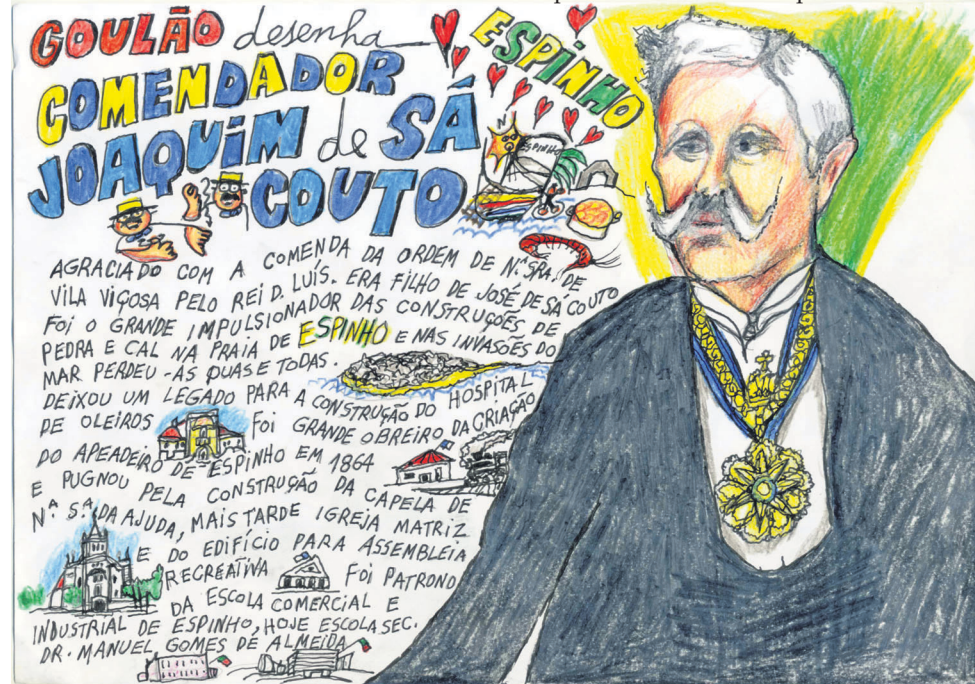 GOULÃO desenha
ESPINHO
COMENDADOR
JOAQUIM de SÁ
COUTO
ESPINHO
AGRACIADO COM A COMENDA DA ORDEM DE Nª SRA. DE
VILA VIÇOSA PELO REI D. LUÍS. ERA FILHO DE JOSÉ DE SÁ COUTO
FOI O GRANDE IMPULSIONADOR DAS CONSTRUÇÕES DE
PEDRA E CAL NA PRAIA DE ESPINHO E NAS INVASÕES DO
MAR PERDEU-AS QUASE TODAS.
DEIXOU UM LEGADO PARA A CONSTRUÇÃO DO HOSPITAL
DE OLEIROS FOI GRANDE OBREIRO DA CRIAÇÃO
DO APEADEIRO DE ESPINHO EM 1864
E PUGNOU PELA CONSTRUÇÃO DA CAPELA DE
Nª Sª DA AJUDA, MAIS TARDE IGREJA MATRIZ
E DO EDIFÍCIO PARA ASSEMBLEIA
RECREATIVA FOI PATRONO
DA ESCOLA COMERCIAL E
INDUSTRIAL DE ESPINHO, HOJE ESCOLA SEC.
DR. MANUEL GOMES DE ALMEIDA